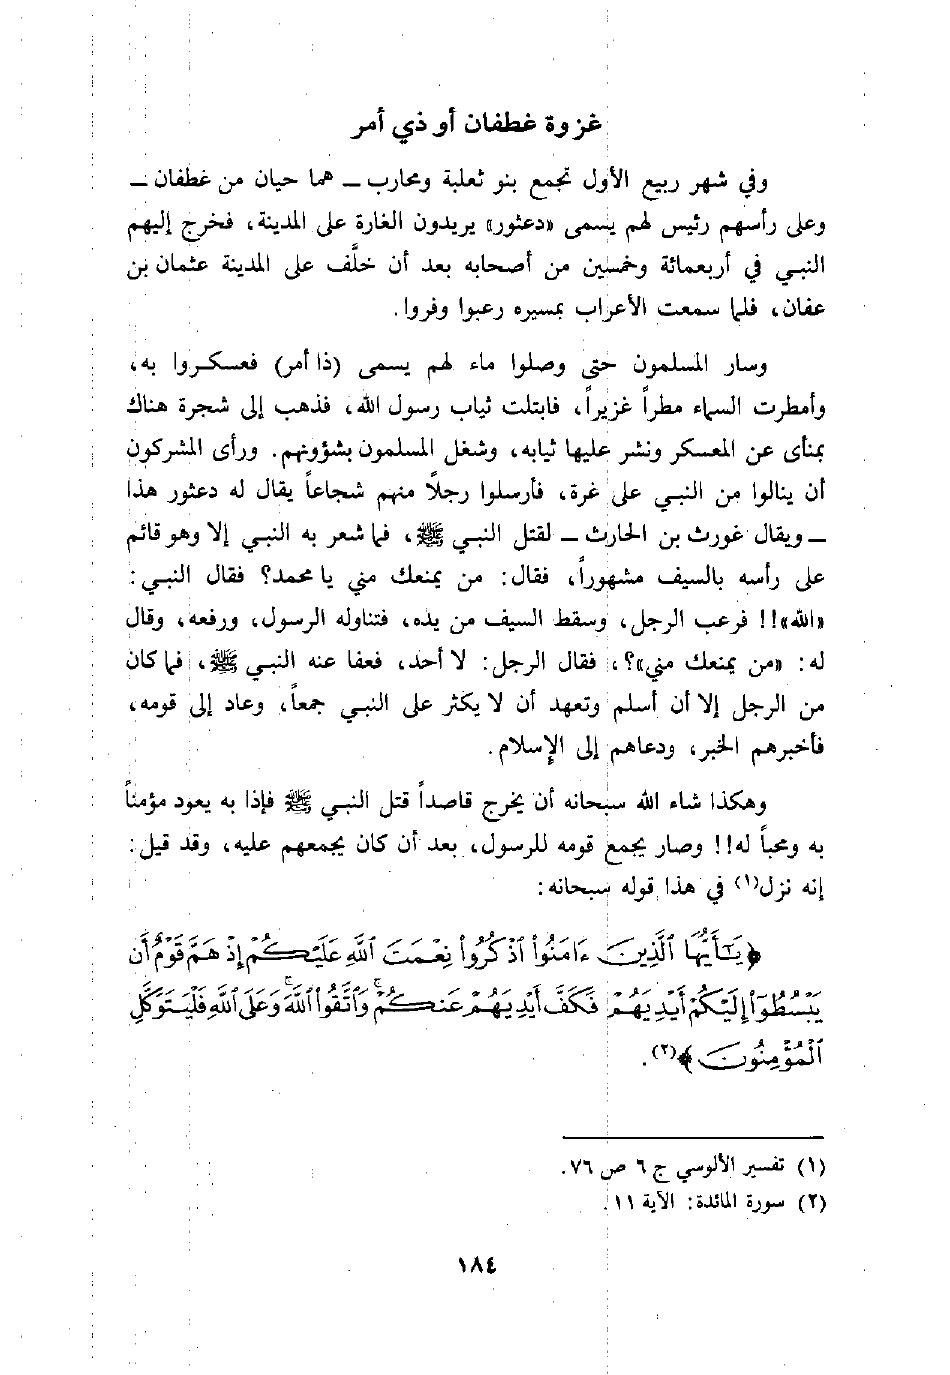 غزوة غطفان أو ذي أمر
وفي شهر ربيع الأول تجمع بنو ثعلبة ومحارب ــ هما حيان من غطفان ــ
وعلى رأسهم رئيس لهم يسمى «دعثور» يريدون الغارة على المدينة، فخرج إليهم
النبي في أربعمائة وخمسين من أصحابه بعد أن خلَّف على المدينة عثمان بن
عفان، فلما سمعت الأعراب بمسيره رعبوا وفروا.
وسار المسلمون حتى وصلوا ماء لهم يسمى (ذا أمر) فعسكروا به،
وأمطرت السماء مطراً غزيراً، فابتلت ثياب رسول الله، فذهب إلى شجرة هناك
بمنأى عن المعسكر ونشر عليها ثيابه، وشغل المسلمون بشؤونهم. ورأى المشركون
أن ينالوا من النبي على غرة، فأرسلوا رجلاً منهم شجاعاً يقال له دعثور هذا
ــ ويقال غورث بن الحارث ــ لقتل النبي ﷺ، فما شعر به النبي إلا وهو قائم
على رأسه بالسيف مشهوراً، فقال: من يمنعك مني يا محمد؟ فقال النبي:
«الله»!! فرعب الرجل، وسقط السيف من يده، فتناوله الرسول، ورفعه، وقال
له: «من يمنعك مني»؟، فقال الرجل: لا أحد، فعفا عنه النبي ﷺ، فما كان
من الرجل إلا أن أسلم وتعهد أن لا يكثر على النبي جمعاً، وعاد إلى قومه،
فأخبرهم الخبر، ودعاهم إلى الإسلام.
وهكذا شاء الله سبحانه أن يخرج قاصداً قتل النبي ﷺ فإذا به يعود مؤمناً
به ومحباً له!! وصار يجمع قومه للرسول، بعد أن كان يجمعهم عليه، وقد قيل:
إنه نزل(١) في هذا قوله سبحانه:
﴿يَـٰٓأَيُّهَا ٱلَّذِينَ ءَامَنُوا۟ ٱذْكُرُوا۟ نِعْمَتَ ٱللَّهِ عَلَيْكُمْ إِذْ هَمَّ قَوْمٌ أَن
يَبْسُطُوٓا۟ إِلَيْكُمْ أَيْدِيَهُمْ فَكَفَّ أَيْدِيَهُمْ عَنكُمْ ۖ وَٱتَّقُوا۟ ٱللَّهَ ۚ وَعَلَى ٱللَّهِ فَلْيَتَوَكَّلِ
ٱلْمُؤْمِنُونَ﴾(٢).
(١) تفسير الألوسي ج ٦ ص ٧٦.
(٢) سورة المائدة: الآية ١١.
١٨٤